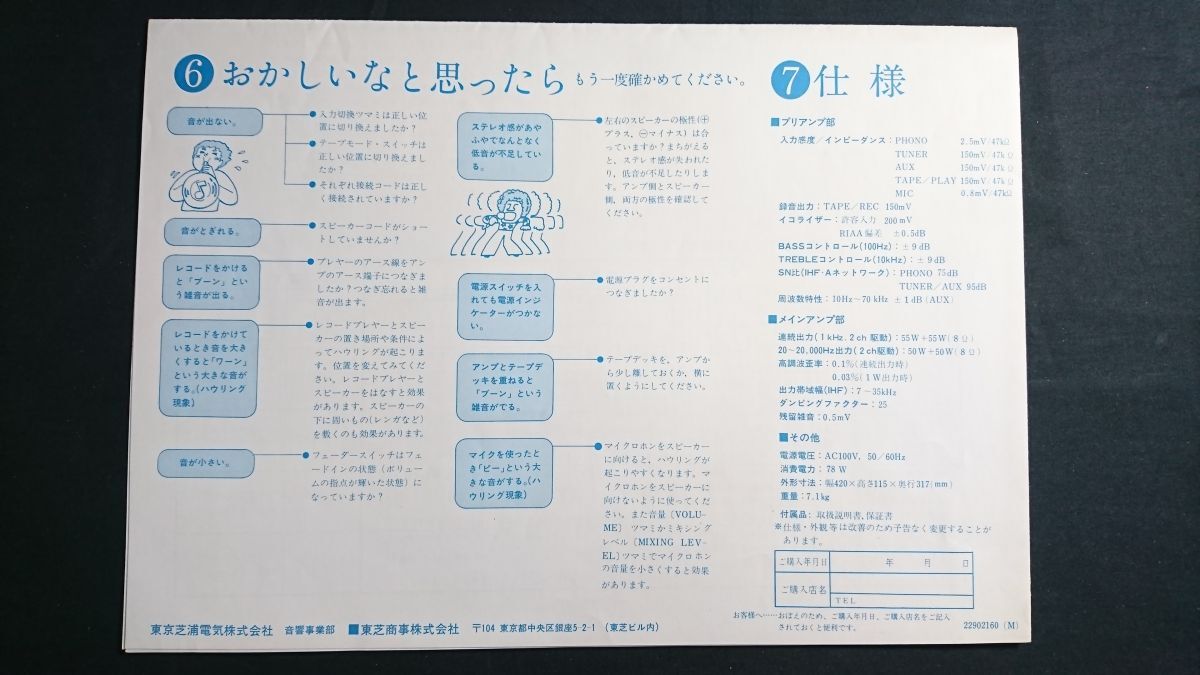 6 おかしいなと思ったら もう一度確かめてください。
音が出ない。
●入力切換ツマミは正しい位
置に切り換えましたか？
●テープモード・スイッチは
正しい位置に切り換えまし
たか？
●それぞれ接続コードは正し
く接続されていますか？
音がとぎれる。
●スピーカーコードがショー
トしていませんか？
レコードをかける
と「ブーン」とい
う雑音が出る。
●プレヤーのアース線をアン
プのアース端子につなぎま
したか？つなぎ忘れると雑
音が出ます。
レコードをかけて
いるとき音を大き
くすると「ワーン」
という大きな音が
する。(ハウリング
現象)
●レコードプレヤーとスピー
カーの置き場所や条件によ
ってハウリングが起こりま
す。位置を変えてみてくだ
さい。レコードプレヤーと
スピーカーをはなすと効果
があります。スピーカーの
下に固いもの(レンガなど)
を敷くのも効果があります。
音が小さい。
●フェーダースイッチはフェ
ードインの状態（ボリュー
ムの指点が輝いた状態）に
なっていますか？
ステレオ感があや
ふやでなんとなく
低音が不足してい
る。
●左右のスピーカーの極性(⊕
プラス、㊀マイナス）は合
っていますか？まちがえる
と、ステレオ感が失われた
り、低音が不足したりしま
す。アンプ側とスピーカー
側、両方の極性を確認して
ください。
電源スイッチを入
れても電源インジ
ケーターがつかな
い。
●電源プラグをコンセントに
つなぎましたか？
アンプとテープデ
ッキを重ねると
「ブーン」という
雑音がでる。
●テープデッキを、アンプか
ら少し離しておくか、横に
置くようにしてください。
マイクを使ったと
き「ピー」という大
きな音がする。(ハ
ウリング現象)
●マイクロホンをスピーカー
に向けると、ハウリングが
起こりやすくなります。マ
イクロホンをスピーカーに
向けないように使ってくだ
さい。また音量〔VOLU-
ME〕ツマミかミキシング
レベル〔MIXING LEV-
EL〕ツマミでマイクロホン
の音量を小さくすると効果
があります。
7 仕様
■プリアンプ部
入力感度／インピーダンス：PHONO 2.5mV/47kΩ
TUNER 150mV/47kΩ
AUX 150mV/47kΩ
TAPE／PLAY 150mV/47kΩ
MIC 0.8mV/47kΩ
録音出力：TAPE／REC 150mV
イコライザー：許容入力 200mV
RIAA偏差 ±0.5dB
BASSコントロール(100Hz)：±9dB
TREBLEコントロール(10kHz)：±9dB
SN比(IHF・Aネットワーク)：PHONO 75dB
TUNER／AUX 95dB
周波数特性：10Hz～70kHz ±1dB(AUX)
■メインアンプ部
連続出力(1kHz. 2ch駆動)：55W+55W(8Ω)
20～20,000Hz出力(2ch駆動)：50W+50W(8Ω)
高調波歪率：0.1%(連続出力時)
0.03%(1W出力時)
出力帯域幅(IHF)：7～35kHz
ダンピングファクター：25
残留雑音：0.5mV
■その他
電源電圧：AC100V, 50／60Hz
消費電力：78W
外形寸法：幅420×高さ115×奥行317(mm)
重量：7.1kg
付属品：取扱説明書、保証書
※仕様・外観等は改善のため予告なく変更することが
あります。
ご購入年月日 年 月 日
ご購入店名
TEL
お客様へ……おぼえのため、ご購入年月日、ご購入店名をご記入
されておくと便利です。
22902160 (M)
東京芝浦電気株式会社 音響事業部 ■東芝商事株式会社 〒104 東京都中央区銀座5-2-1 （東芝ビル内）